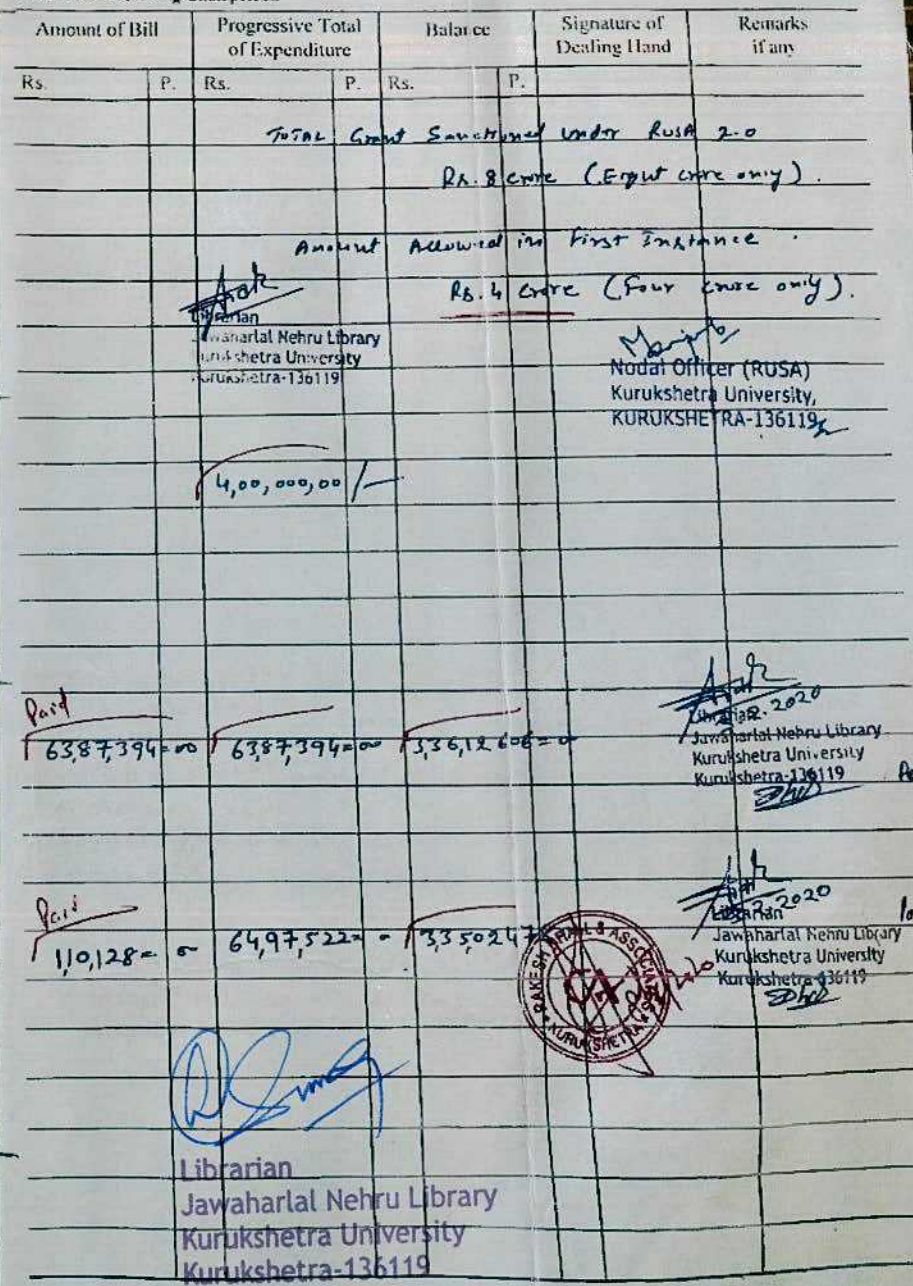 Amount of Bill Progressive Total of Expenditure Balance Signature of Dealing Hand Remarks if any
Rs. P. Rs. P. Rs. P.
TOTAL Grant Sanctioned under RUSA 2.0
Rs. 8 crore (Eight crore only).
Amount Allowed in First Instance.
Rs. 4 crore (Four crore only).
Librarian
Jawaharlal Nehru Library
Kurukshetra University
Kurukshetra-136119
Nodal Officer (RUSA)
Kurukshetra University,
KURUKSHETRA-136119
4,00,000,00/-
Paid
63,87,394=00 63,87,394=00 3,36,12,606=0
Librarian
.2.2020
Jawaharlal Nehru Library
Kurukshetra University
Kurukshetra-136119
Paid
1,10,128=0 64,97,522=0 3,35,02,47
RAKESH & ASSOCIATES
CA
KURUKSHETRA
Librarian
.2.2020
Jawaharlal Nehru Library
Kurukshetra University
Kurukshetra-136119
Librarian
Jawaharlal Nehru Library
Kurukshetra University
Kurukshetra-136119